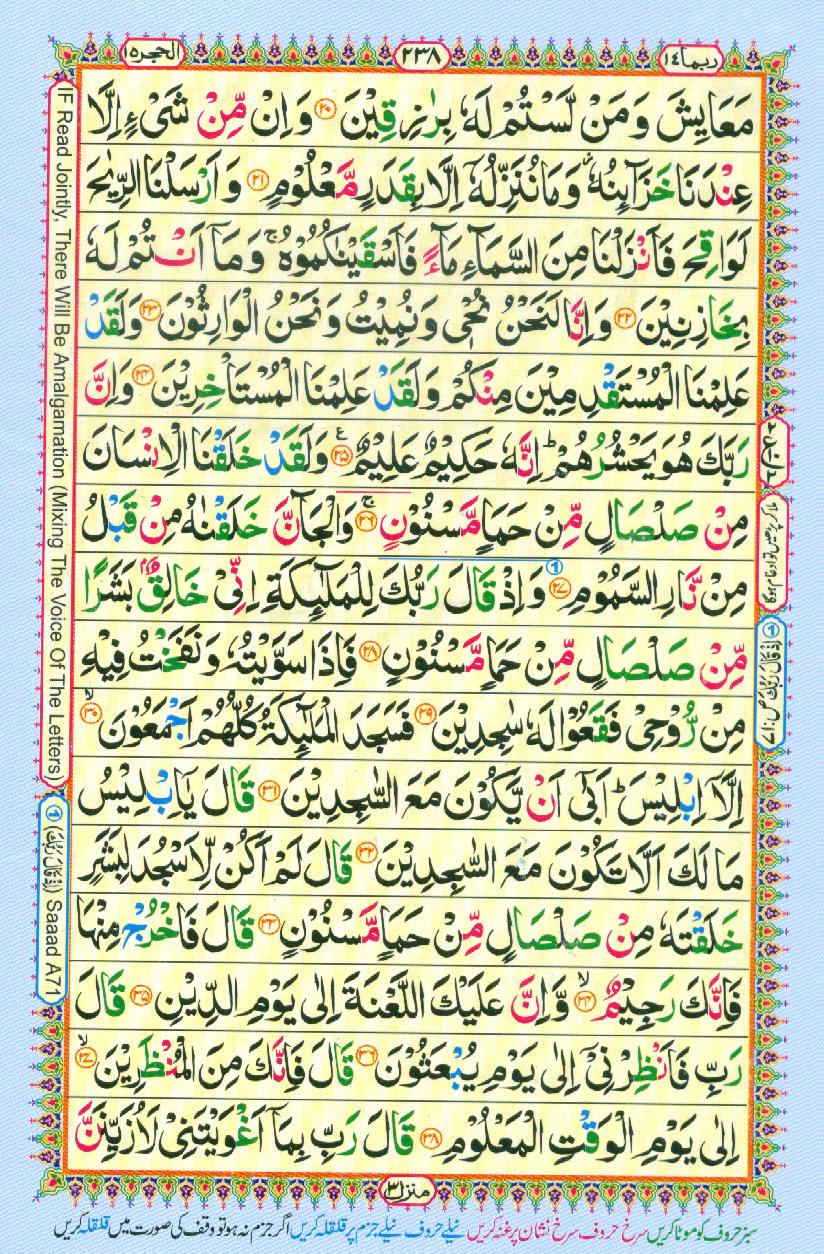 ربما ١٤
٢٣٨
الحجر ١٥
مَعَايِشَ وَمَنْ لَّسْتُمْ لَهٗ بِرٰزِقِيْنَ ﴿٢٠﴾ وَاِنْ مِّنْ شَىْءٍ اِلَّا
عِنْدَنَا خَزَآئِنُهٗ ۫ وَمَا نُنَزِّلُهٗٓ اِلَّا بِقَدَرٍ مَّعْلُوْمٍ ﴿٢١﴾ وَاَرْسَلْنَا الرِّيٰحَ
لَوَاقِحَ فَاَنْزَلْنَا مِنَ السَّمَآءِ مَآءً فَاَسْقَيْنٰكُمُوْهُ ۚ وَمَآ اَنْتُمْ لَهٗ
بِخَازِنِيْنَ ﴿٢٢﴾ وَاِنَّا لَنَحْنُ نُحْىٖ وَنُمِيْتُ وَنَحْنُ الْوَارِثُوْنَ ﴿٢٣﴾ وَلَقَدْ
عَلِمْنَا الْمُسْتَقْدِمِيْنَ مِنْكُمْ وَلَقَدْ عَلِمْنَا الْمُسْتَاْخِرِيْنَ ﴿٢٤﴾ وَاِنَّ
رَبَّكَ هُوَ يَحْشُرُهُمْ ؕ اِنَّهٗ حَكِيْمٌ عَلِيْمٌ ﴿٢٥﴾ ع وَلَقَدْ خَلَقْنَا الْاِنْسَانَ
مِنْ صَلْصَالٍ مِّنْ حَمَاٍ مَّسْنُوْنٍ ۚ ﴿٢٦﴾ وَالْجَآنَّ خَلَقْنٰهُ مِنْ قَبْلُ
مِنْ نَّارِ السَّمُوْمِ ﴿٢٧﴾ ① وَاِذْ قَالَ رَبُّكَ لِلْمَلٰٓئِكَةِ اِنِّىْ خَالِقٌۢ بَشَرًا
مِّنْ صَلْصَالٍ مِّنْ حَمَاٍ مَّسْنُوْنٍ ﴿٢٨﴾ فَاِذَا سَوَّيْتُهٗ وَنَفَخْتُ فِيْهِ
مِنْ رُّوْحِىْ فَقَعُوْا لَهٗ سٰجِدِيْنَ ﴿٢٩﴾ فَسَجَدَ الْمَلٰٓئِكَةُ كُلُّهُمْ اَجْمَعُوْنَ ۙ ﴿٣٠﴾
اِلَّآ اِبْلِيْسَ ؕ اَبٰٓى اَنْ يَّكُوْنَ مَعَ السّٰجِدِيْنَ ﴿٣١﴾ قَالَ يٰٓاِبْلِيْسُ
مَا لَكَ اَلَّا تَكُوْنَ مَعَ السّٰجِدِيْنَ ﴿٣٢﴾ قَالَ لَمْ اَكُنْ لِّاَسْجُدَ لِبَشَرٍ
خَلَقْتَهٗ مِنْ صَلْصَالٍ مِّنْ حَمَاٍ مَّسْنُوْنٍ ﴿٣٣﴾ قَالَ فَاخْرُجْ مِنْهَا
فَاِنَّكَ رَجِيْمٌ ۙ ﴿٣٤﴾ وَّاِنَّ عَلَيْكَ اللَّعْنَةَ اِلٰى يَوْمِ الدِّيْنِ ﴿٣٥﴾ قَالَ
رَبِّ فَاَنْظِرْنِىْٓ اِلٰى يَوْمِ يُبْعَثُوْنَ ﴿٣٦﴾ قَالَ فَاِنَّكَ مِنَ الْمُنْظَرِيْنَ ۙ ﴿٣٧﴾
اِلٰى يَوْمِ الْوَقْتِ الْمَعْلُوْمِ ﴿٣٨﴾ قَالَ رَبِّ بِمَآ اَغْوَيْتَنِىْ لَاُزَيِّنَنَّ
منزل ٣
سبز حروف کو موٹا کریں سرخ حروف سرخ نشان پر غنہ کریں نیلے حروف نیلے جزم پر قلقلہ کریں اگر جزم نہ ہو تو وقف کی صورت میں قلقلہ کریں
IF Read Jointly, There Will Be Amalgamation (Mixing The Voice Of The Letters)
① (اِذْ قَالَ رَبُّكَ) Saaad A71